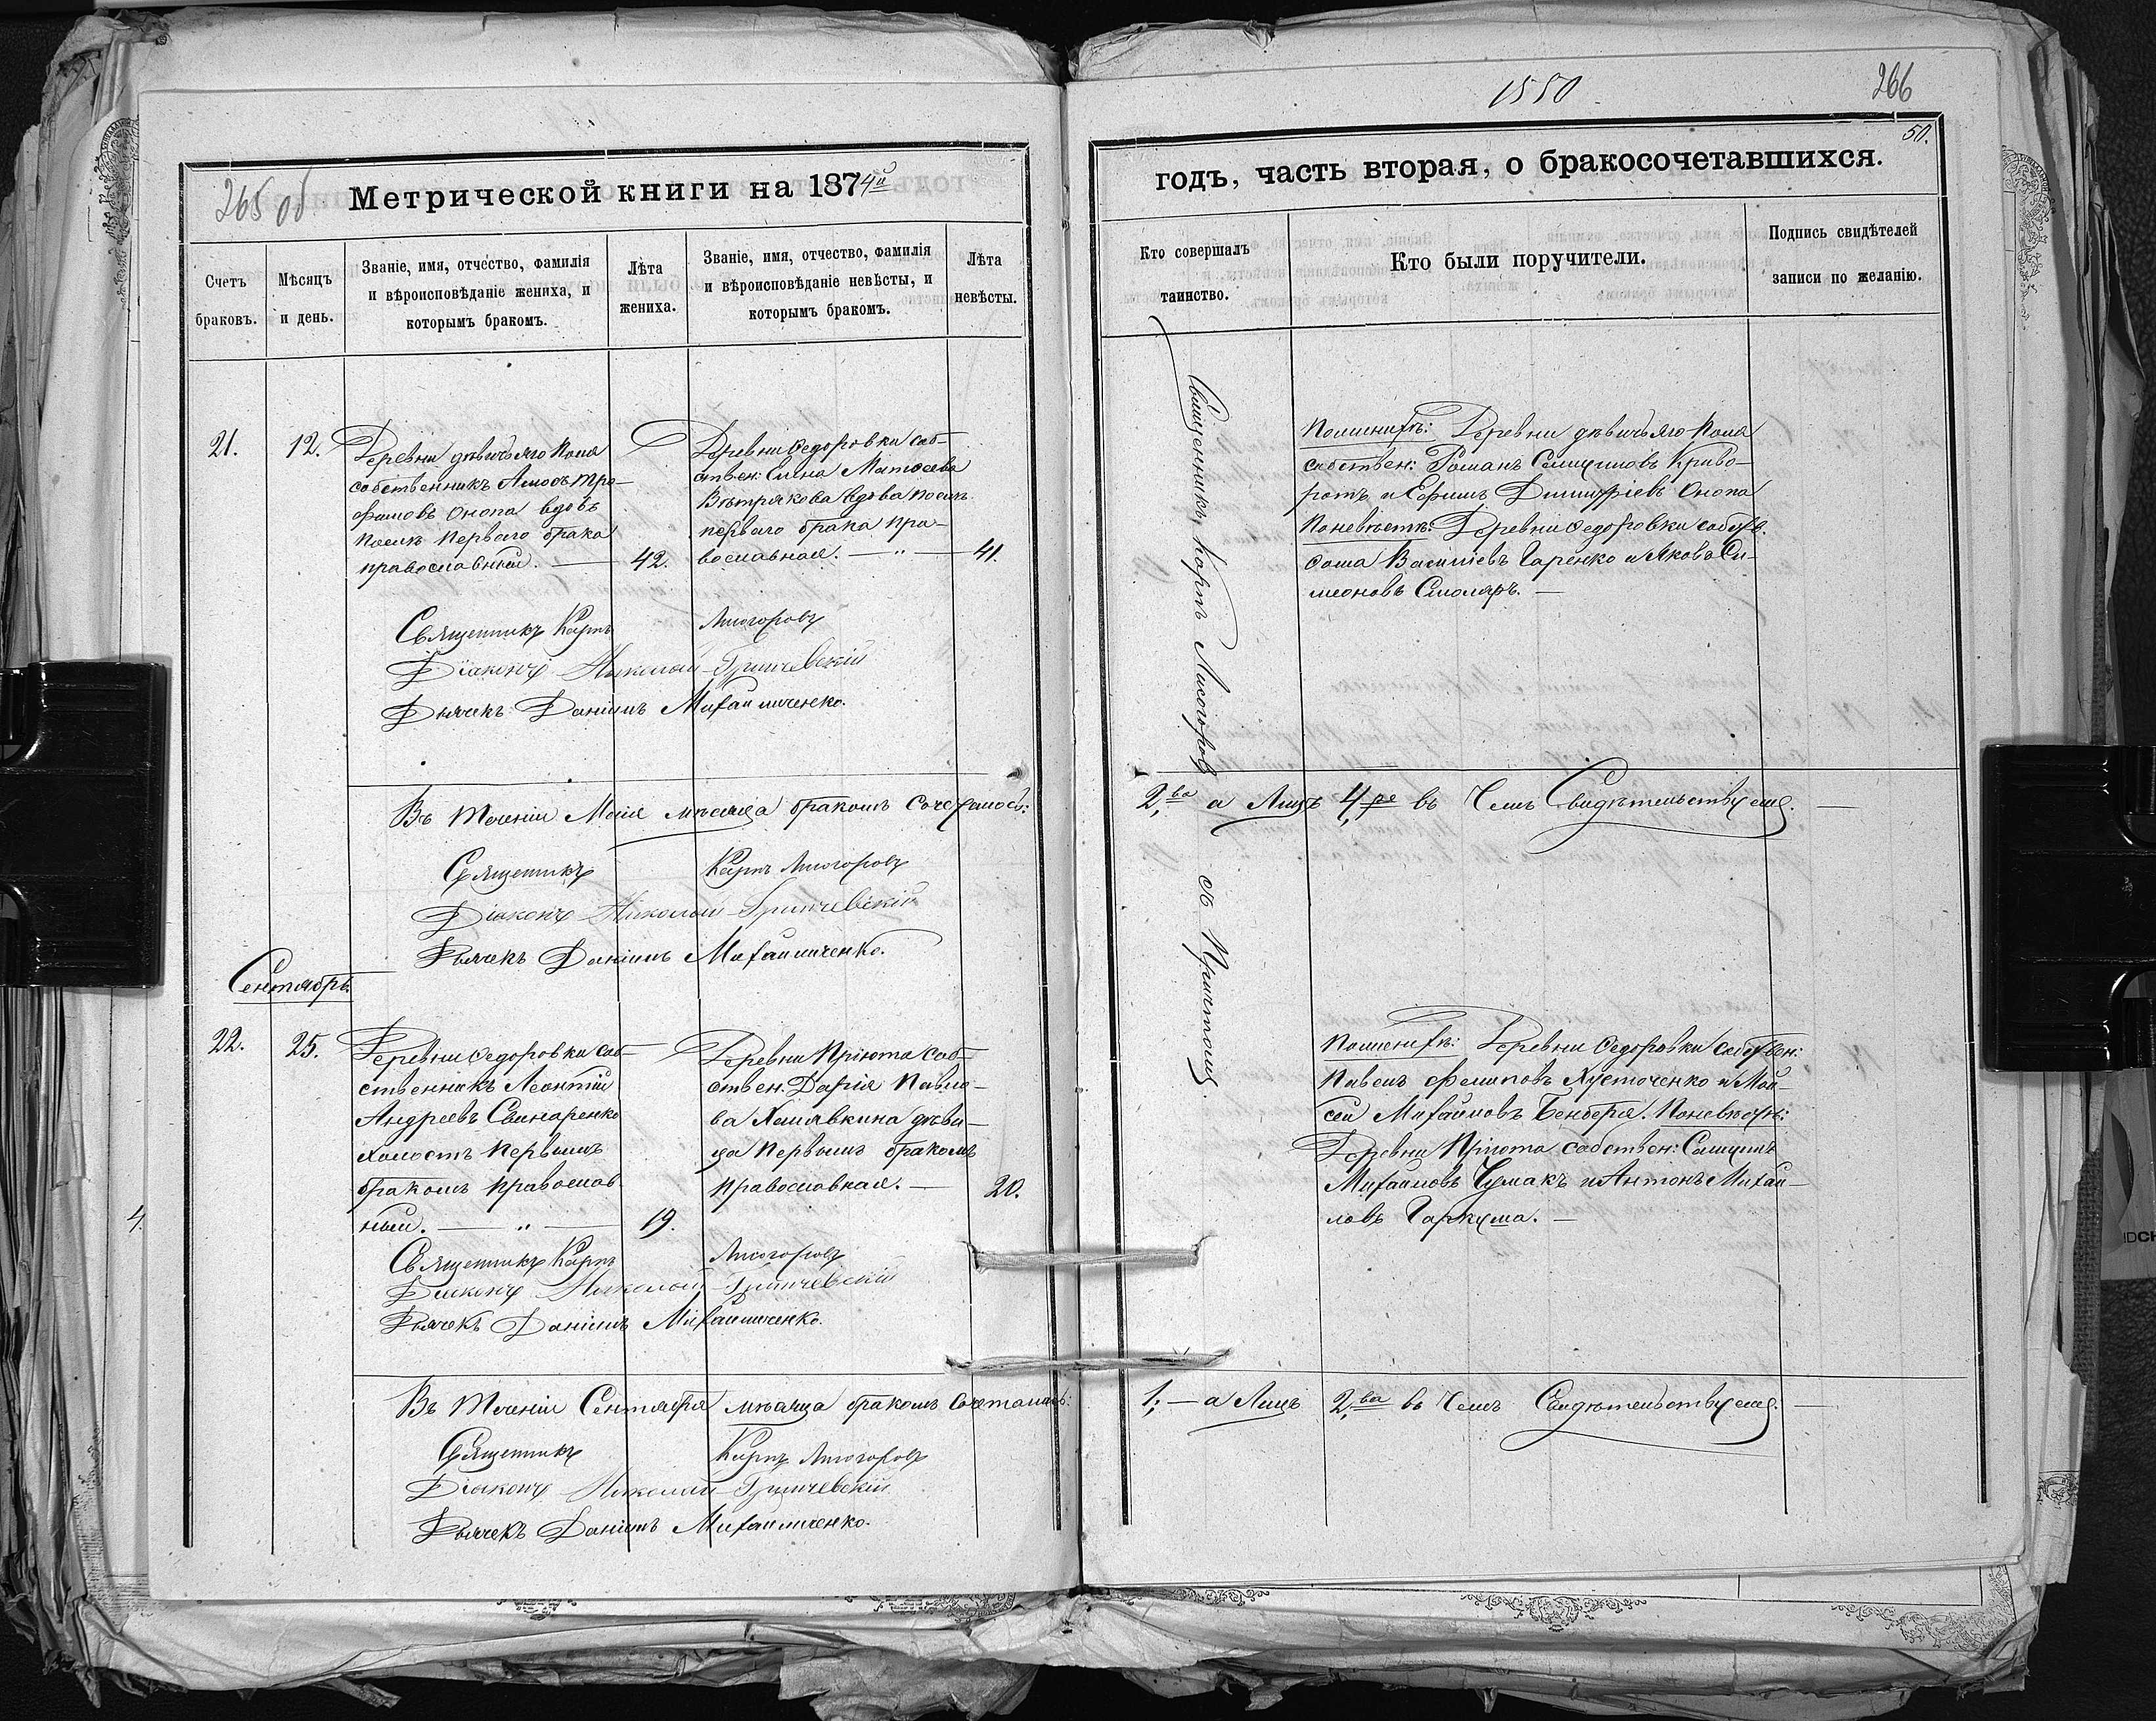 265 об
Метрической книги на 1874й
Счетъ браковъ.
Мѣсяцъ и день.
Званіе, имя, отчество, фамилія
и вѣроисповѣданіе жениха, и
которымъ бракомъ.
Лѣта
жениха.
Званіе, имя, отчество, фамилія
и вѣроисповѣданіе невѣсты, и
которымъ бракомъ.
Лѣта
невѣсты.
21.
12.
Деревни дѣвичьяго Поля
собственникъ Амосъ Тро-
фимовъ Онопа вдовъ
послѣ перваго брака
православный. 42.
Деревни Ѳедоровки соб-
ствен: Елена Матѳеева
Вѣтрякова вдова послѣ
перваго брака пра-
вославная. — „ — 41.
Священникъ Карпъ Лисогоровъ
Діаконъ Николай Гриневскій
Дьячекъ Даніилъ Михайличенко.
Въ теченіи Маія мѣсяца бракомъ сочеталось:
Священникъ Карпъ Лисогоровъ
Діаконъ Николай Гриневскій
Дьячекъ Даніилъ Михайличенко.
Сентябрь.
22.
25.
Деревни Ѳедоровки соб-
ственникъ Леонтій
Андреевъ Свинаренко
холостъ первымъ
бракомъ православ
ный. — „ — 19.
Деревни Пріюта соб-
ствен: Дарія Павло-
ва Хомявкина дѣви-
ца первымъ бракомъ
православная. — 20.
Священникъ Карпъ Лисогоровъ
Діаконъ Николай Гриневскій
Дьячекъ Даніилъ Михайличенко.
Въ теченіи Сентября мѣсяца бракомъ сочеталось:
Священникъ Карпъ Лисогоровъ
Діаконъ Николай Гриневскій
Дьячекъ Даніилъ Михайличенко.
4.
1550
266
50.
годъ, часть вторая, о бракосочетавшихся.
Кто совершалъ
таинство.
Кто были поручители.
Подпись свидѣтелей
записи по желанію.
Священникъ Карпъ Лисогоровъ съ Причтомъ.
По женихѣ: Деревни дѣвичьяго Поля
собствен: Романъ Самуиловъ Криво-
ротъ и Ефимъ Димитріевъ Онопа
По невѣстѣ: Деревни Ѳедоровки собств.
Василіевъ Гаренко и Яковъ Си-
меоновъ Смоляръ. —
2,ва а Лицъ 4,ре въ Чемъ Свидѣтельствуемъ. —
По женихѣ: Деревни Ѳедоровки собствен:
Павелъ Филиповъ Хусточенко и Мои-
сей Михайловъ Бендеря. По невѣстѣ:
Деревни Пріюта собствен: Самуилъ
Михайловъ Чумакъ и Антонъ Михай-
ловъ Гаркуша. —
1; — а Лицъ 2,ва въ Чемъ Свидѣтельствуемъ. —